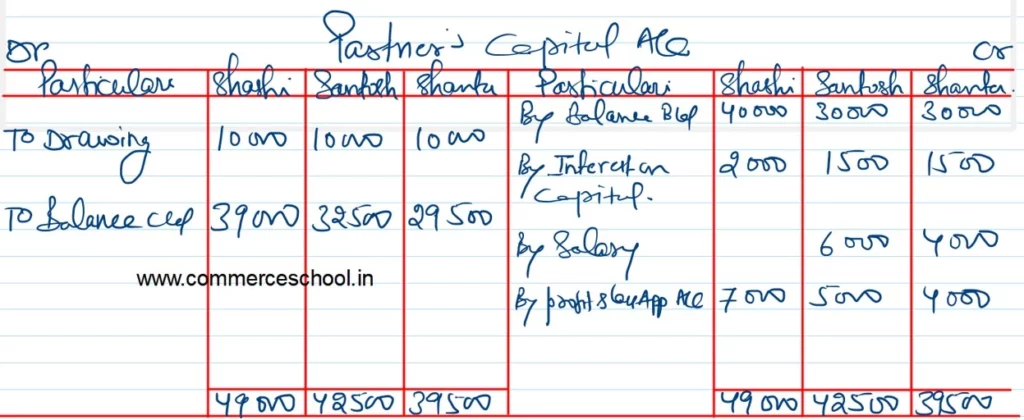 Partner's Capital A/c
Dr Cr
Particulars Shashi Santosh Shanta Particulars Shashi Santosh Shanta
By Balance B/d 40000 30000 30000
To Drawing 10000 10000 10000
By Interest on 2000 1500 1500
Capital.
To Balance c/d 39000 32500 29500
By Salary 6000 4000
www.commerceschool.in
By profit & loss App A/c 7000 5000 4000
49000 42500 39500 49000 42500 39500